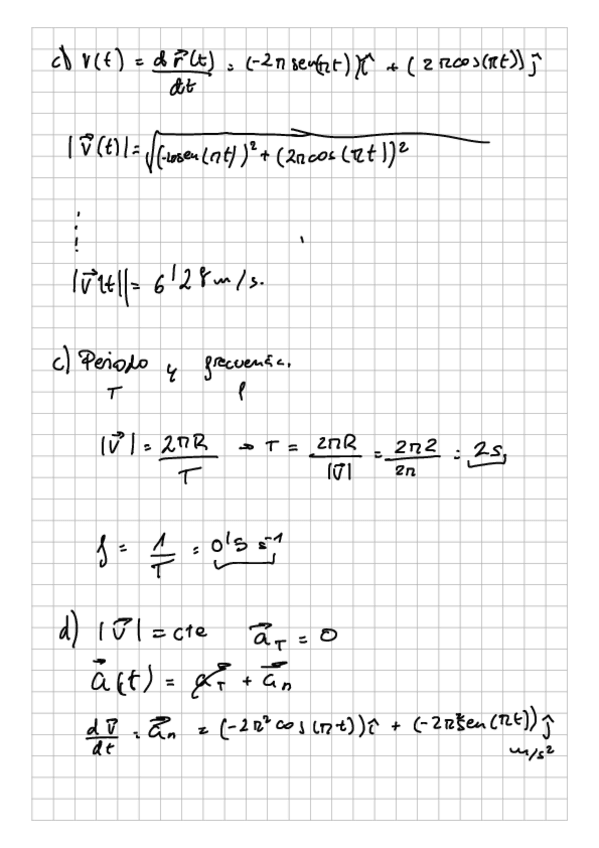 c) v(t) = d r⃗(t)/dt = (-2π sen(πt)) î + (2πcos(πt)) ĵ
|v⃗(t)| = √((-10sen(πt))² + (2πcos(πt))²)
⋮
|v⃗(t)| = 6'28 m/s.
c) Periodo y frecuencia.
T f
|v⃗| = 2πR/T → T = 2πR/|v⃗| = 2π2/2π = 2s
f = 1/T = 0'5 s⁻¹
d) |v⃗| = cte a⃗_T = 0
a⃗(t) = a⃗_T + a⃗_n
dv⃗/dt = a⃗_n = (-2π² cos(πt)) î + (-2π² sen(πt)) ĵ
m/s²